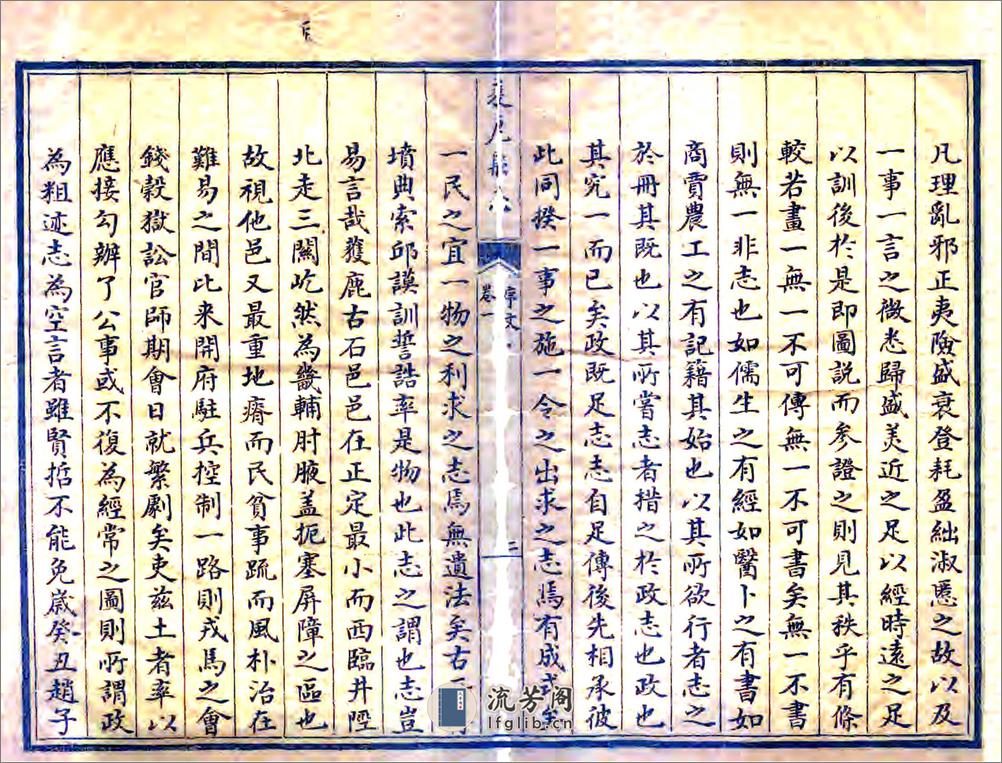 凡理亂邪正夷險盛衰登耗盈絀淑慝之故以及
一事一言之微悉歸盛美近之足以經時遠之足
以訓後於是即圖說而參證之則見其秩乎有條
較若畫一無一不可傳無一不可書矣無一不書
則無一非志也如儒生之有經如醫卜之有書如
商賈農工之有記籍其始也以其所欲行者志之
於冊其既也以其所嘗志者措之於政志也政也
其究一而已矣政既足志志自足傳後先相承彼
此同揆一事之施一令之出求之志焉有成式矣
序文
卷一
二
一民之宜一物之利求之志焉無遺法矣古
墳典索邱謨訓誓誥率是物也此志之謂也志豈
易言哉獲鹿古石邑邑在正定最小而西臨井陘
北走三關屹然為畿輔肘腋蓋扼塞屏障之區也
故視他邑又最重地瘠而民貧事疏而風朴治在
難易之間比來開府駐兵控制一路則戎馬之會
錢穀獄訟官師期會日就繁劇矣吏茲土者率以
應接勾辦了公事或不復為經常之圖則所謂政
為粗迹志為空言者雖賢哲不能免歲癸丑趙子
流芳阁
lfglib.cn